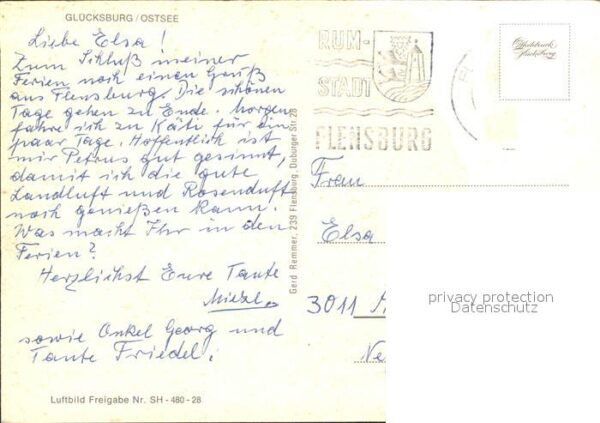 GLÜCKSBURG/OSTSEE
Liebe Elsa!
Zum Schluß meiner
Ferien noch einen Gruß
aus Flensburg. Die schönen
Tage gehen zu Ende. Morgen
fahre ich zu Käti für ein
paar Tage. Hoffentlich ist
mir Petrus gut gesinnt,
damit ich die gute
Landluft und Rosenduft
noch genießen kann.
Was macht Ihr in den
Ferien?
Herzlichst Eure Tante
sowie Onkel Georg und
Tante Friedel.
Luftbild Freigabe Nr. SH - 480 - 28
Gerd Remmer, 239 Flensburg, Duburger Str. 28
RUM-
STADT
FLENSBURG
Frau
Elsa
3011
privacy protection
Datenschutz